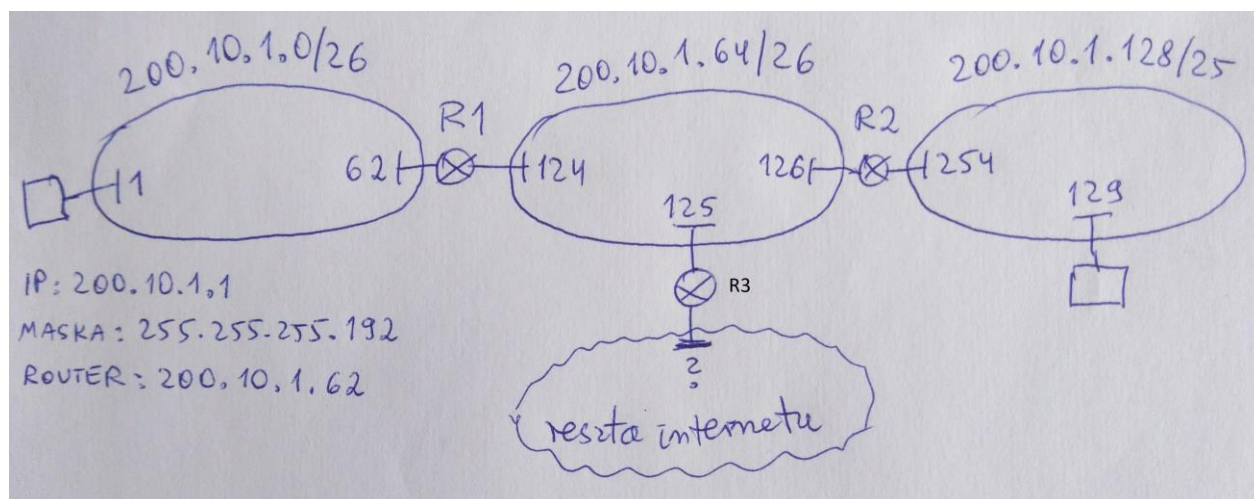 200.10.1.0/26
200.10.1.64/26
200.10.1.128/25
R1
R2
1
62
124
126
254
125
129
R3
IP: 200.10.1.1
MASKA: 255.255.255.192
ROUTER: 200.10.1.62
?
reszta internetu